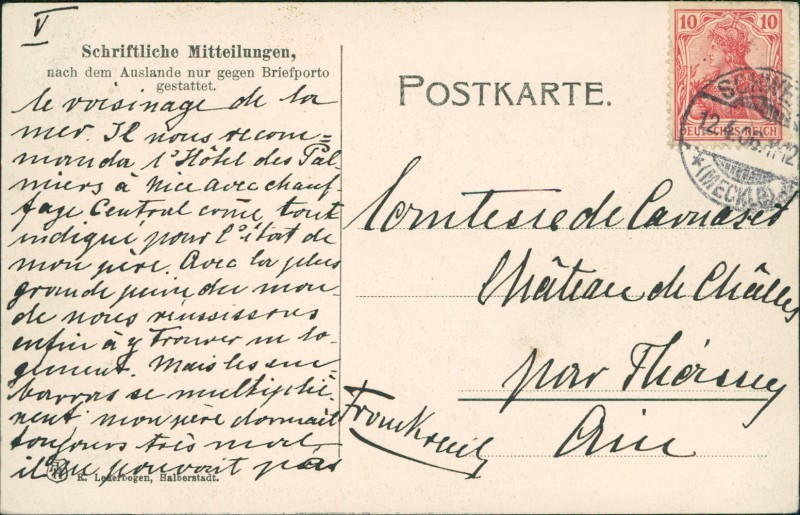 V
Schriftliche Mitteilungen,
nach dem Auslande nur gegen Briefporto
gestattet.
le voisinage de la
mer. Il nous recom=
manda l'Hôtel des Pal-
miers à Nice avec chauf-
fage Central come tout
indiqué pour l'état de
mon père. Avec la plus
grande peine du mon-
de nous reussissons
enfin à y trouver un lo-
gement. Mais les em-
barras se multipliè-
rent mon père dormait
toujours très mal
il ne pouvait pas
K. Lederbogen, Halberstadt.
POSTKARTE.
10 10
DEUTSCHES REICH
SCHWE
12.4.06.11-12
*(MECKLB)
Comtesse de
Château de Châlles
par Thézillieu
Ain
Frankreich